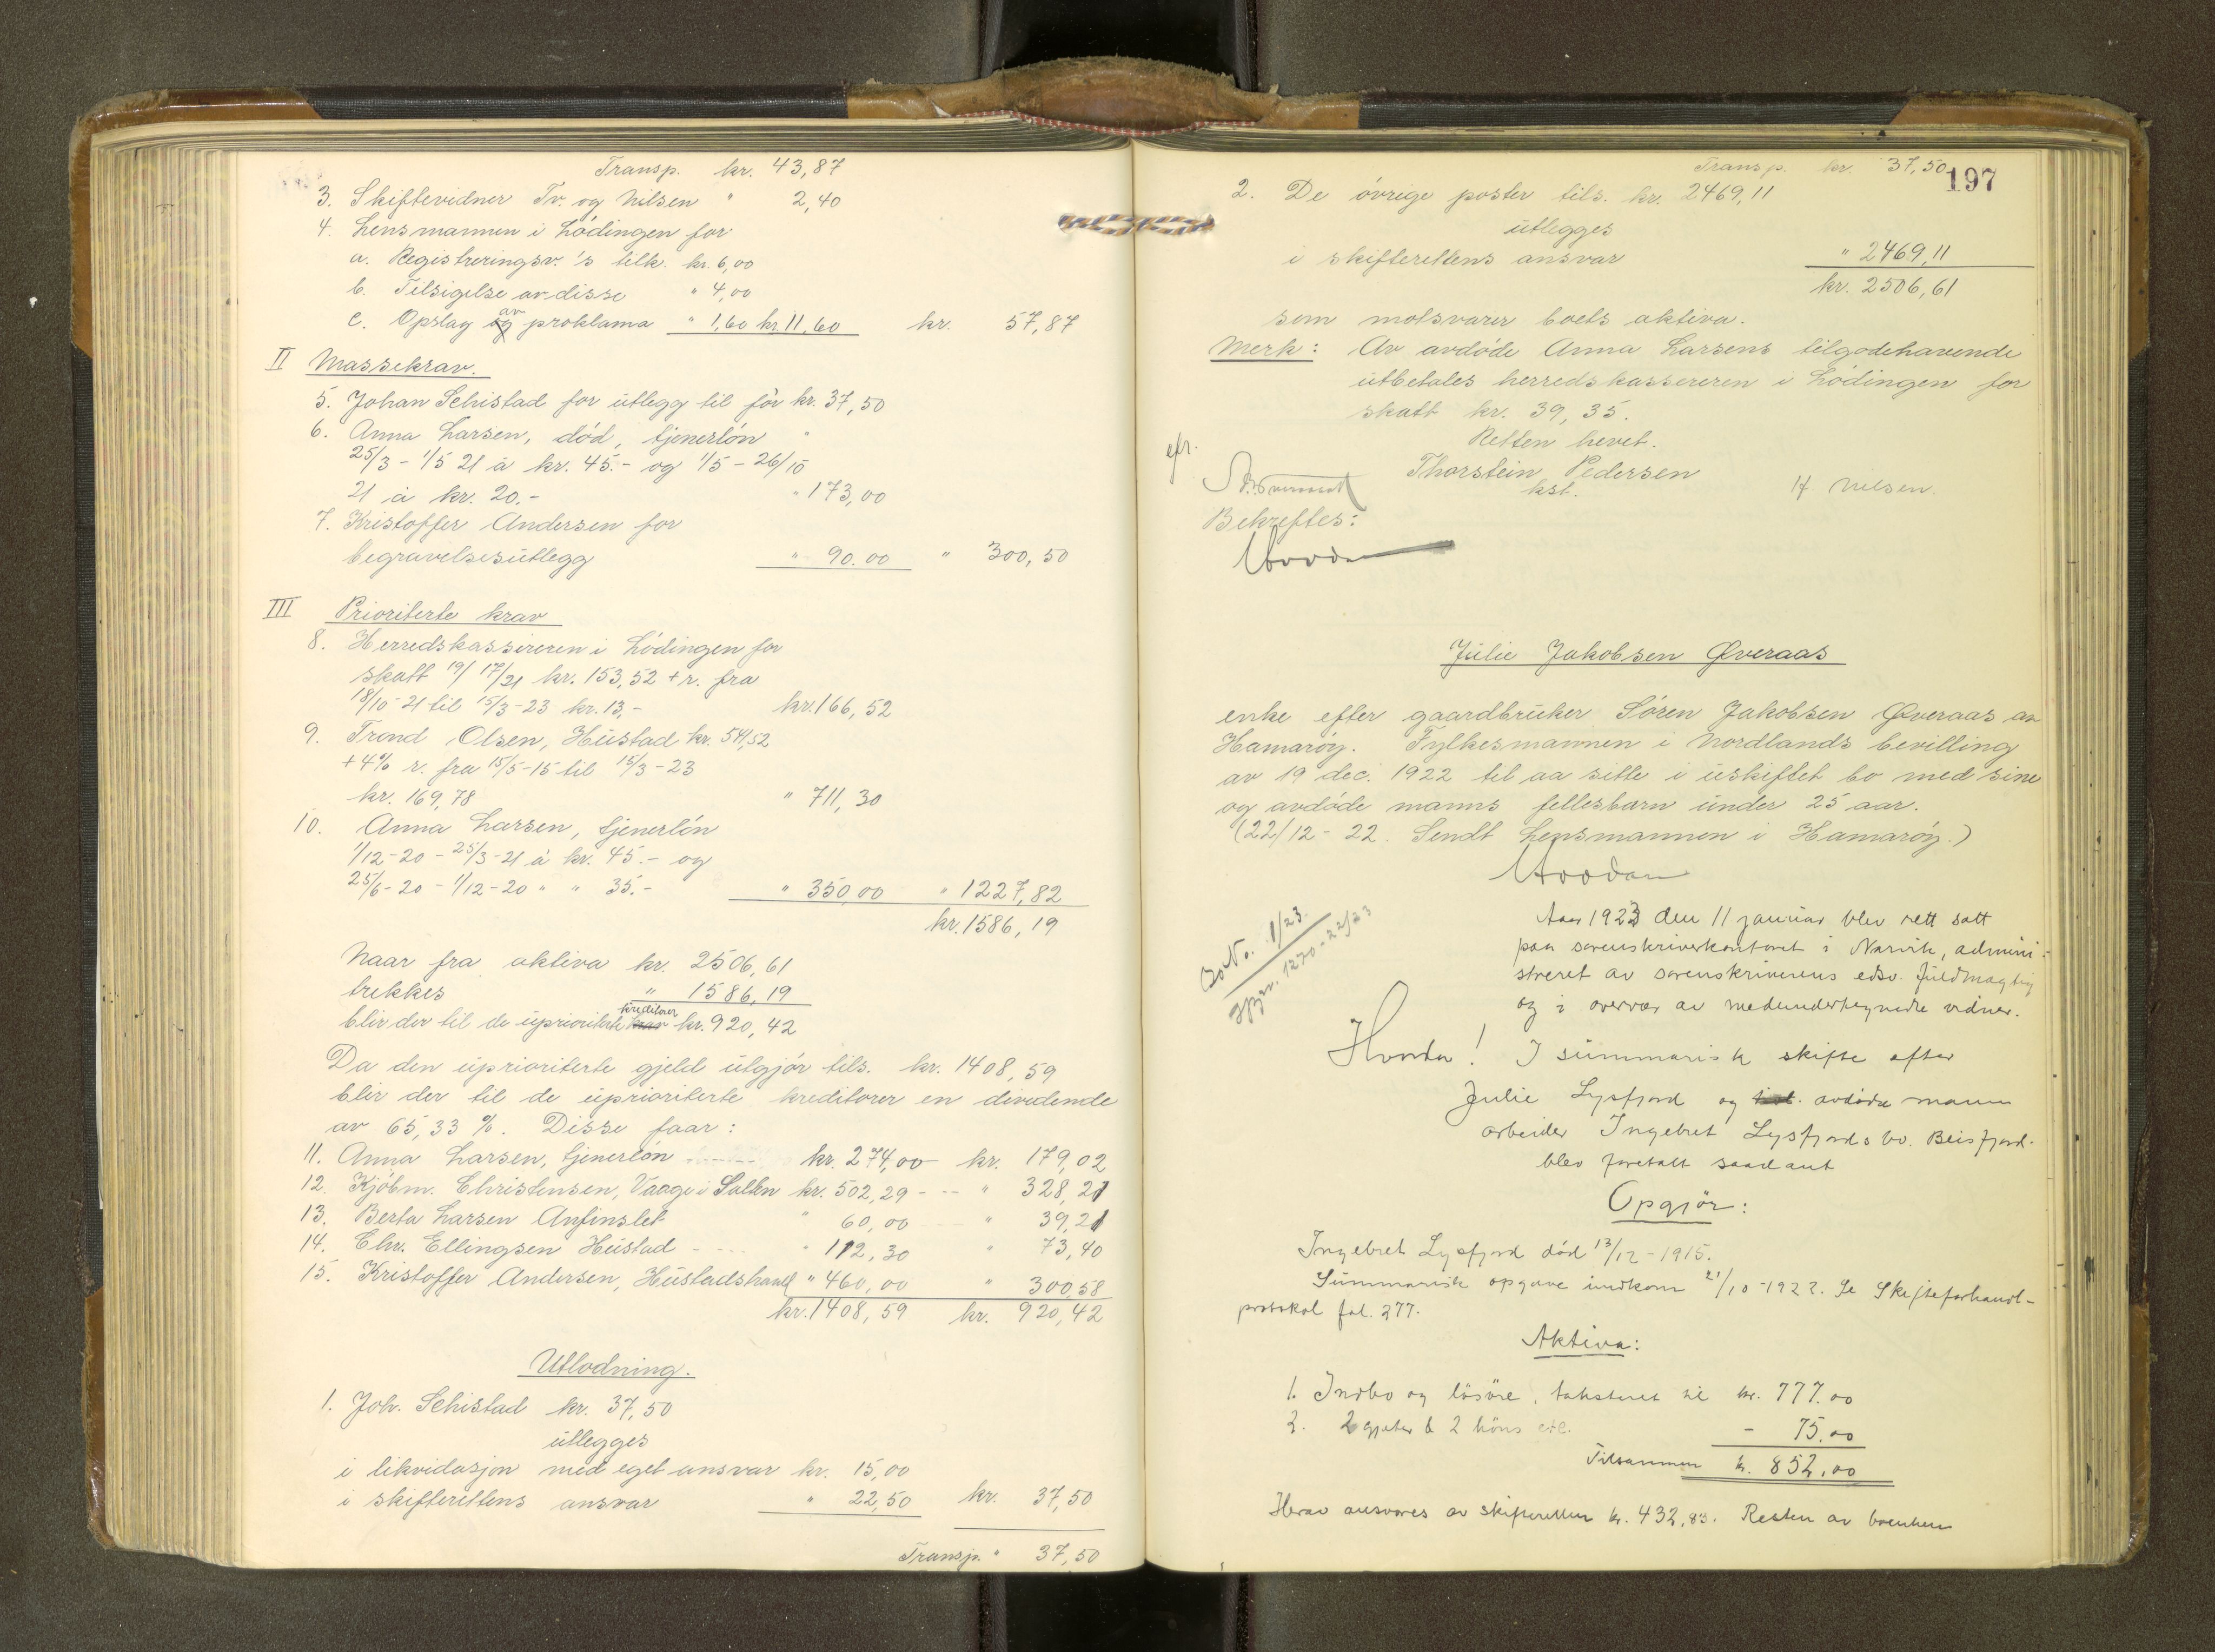 Transp. kr. 43,87
3. Skiftevidner Tv. og Nilsen " 2,40
4. Lensmannen i Lödingen for
a. Registreringsv.'s tilk. kr. 6,00
b. Tilsigelse av disse " 4,00
c. Opslag av proklama " 1,60 kr. 11,60 kr. 57,87
II Massekrav.
5. Johan Schistad for utlegg til för kr. 37,50
6. Anna Larsen, död, tjenerlön "
25/3 - 1/5 21 à kr. 45.- og 1/5 - 26/10
21 à kr. 20.- " 173,00
7. Kristoffer Andersen for
begravelsesutlegg " 90.00 " 300,50
III Prioriterte krav
8. Herredskassereren i Lödingen for
skatt 19/ 17/21 kr. 153,52 + r. fra
18/10-21 til 15/3-23 kr. 13,- kr. 166,52
9. Trond Olsen, Hustad kr. 541,52
+ 4% r. fra 15/5-15 til 15/3-23
kr. 169,78 " 711,30
10. Anna Larsen, tjenerlön
1/12-20 - 25/3-21 à kr. 45.- og
25/6-20 - 1/12-20 " " 35.- " 350,00 " 1227,82
kr. 1586,19
Naar fra aktiva kr. 2506,61
trekkes " 1586,19
blir der til de uprioriterte kreditorer kr. 920,42
Da den uprioriterte gjeld utgjör tils. kr. 1408,59
blir der til de uprioriterte kreditorer en dividende
av 65,33 %. Disse faar:
11. Anna Larsen, tjenerlön kr. 274,00 kr. 179,02
12. Kjöbm. Christensen, Vaage i Salten kr. 502,29 - " 328,21
13. Berta Larsen Anfinslet " 60,00 " 39,21
14. Chr. Ellingsen Hustad - " 112,30 " 73,40
15. Kristoffer Andersen, Hustadstrand " 460,00 " 300,58
kr. 1408,59 kr. 920,42
Utlodning.
1. Joh. Schistad kr. 37,50
utlegges
i likvidasjon med eget ansvar kr. 15,00
i skifterettens ansvar " 22,50 kr. 37,50
Transp. " 37,50
Transp. kr. 37,50
197
2. De övrige poster tils. kr. 2469,11
utlegges
i skifterettens ansvar " 2469,11
kr. 2506,61
som motsvarer boets aktiva.
Merk: Av avdöde Anna Larsens tilgodehavende
utbetales herredskassereren i Lödingen for
skatt kr. 39,35.
Retten hevet.
Thorstein Pedersen
kst. H Nilsen.
Bekreftes:
Julie Jakobsen Øveraas
enke efter gaardbruker Sören Jakobsen Øveraas av
Hamaröy. Fylkesmannen i Nordlands bevilling
av 19 dec. 1922 til aa sitte i uskiftet bo med sine
og avdöde manns fellesbarn under 25 aar.
(22/12 - 22. Sendt Lensmannen i Hamaröy.)
Bo No. 1/23.
1270-22/23
Aar 1923 den 11 januar blev rett satt
paa sorenskriverkontoret i Narvik, admini-
streret av sorenskriverens edsv. fuldmægtig
og i overvær av medundertegnede vidner.
Hvorda! I summarisk skifte efter
Julie Lysfjord og avdöde mann
arbeider Ingebret Lysfjords bo. Beisfjord.
blev foretatt saadant
Opgjör:
Ingebret Lysfjord död 13/12-1915.
Summarisk opgave indkom 21/10-1922. Se Skifteforhandl-
protokol fol. 277.
Aktiva:
1. Indbo og lösöre, taksteret til kr. 777.00
2. 2 gjeter & 2 höns etc. - 75.00
Tilsammen kr. 852,00
Herav ansvares av skifteretten kr. 432,83. Resten av